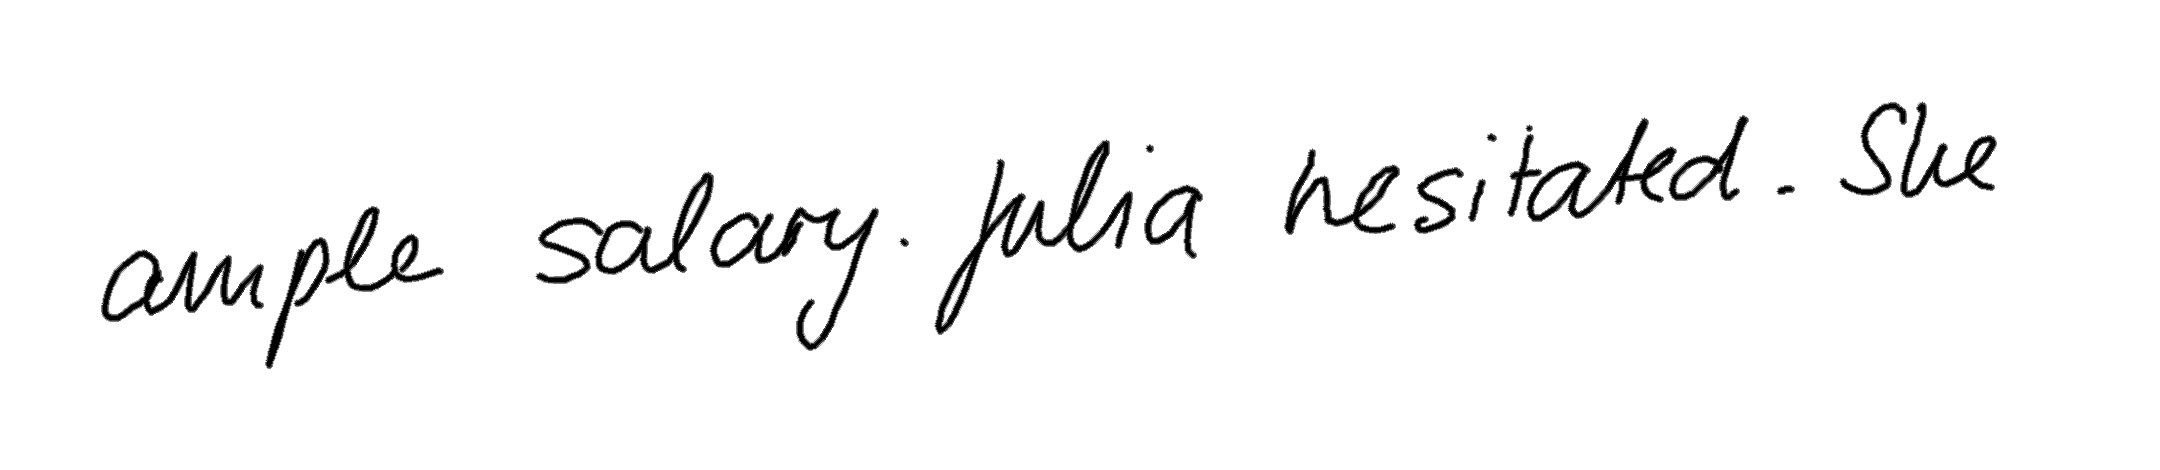 ample salary. Julia hesitated. She